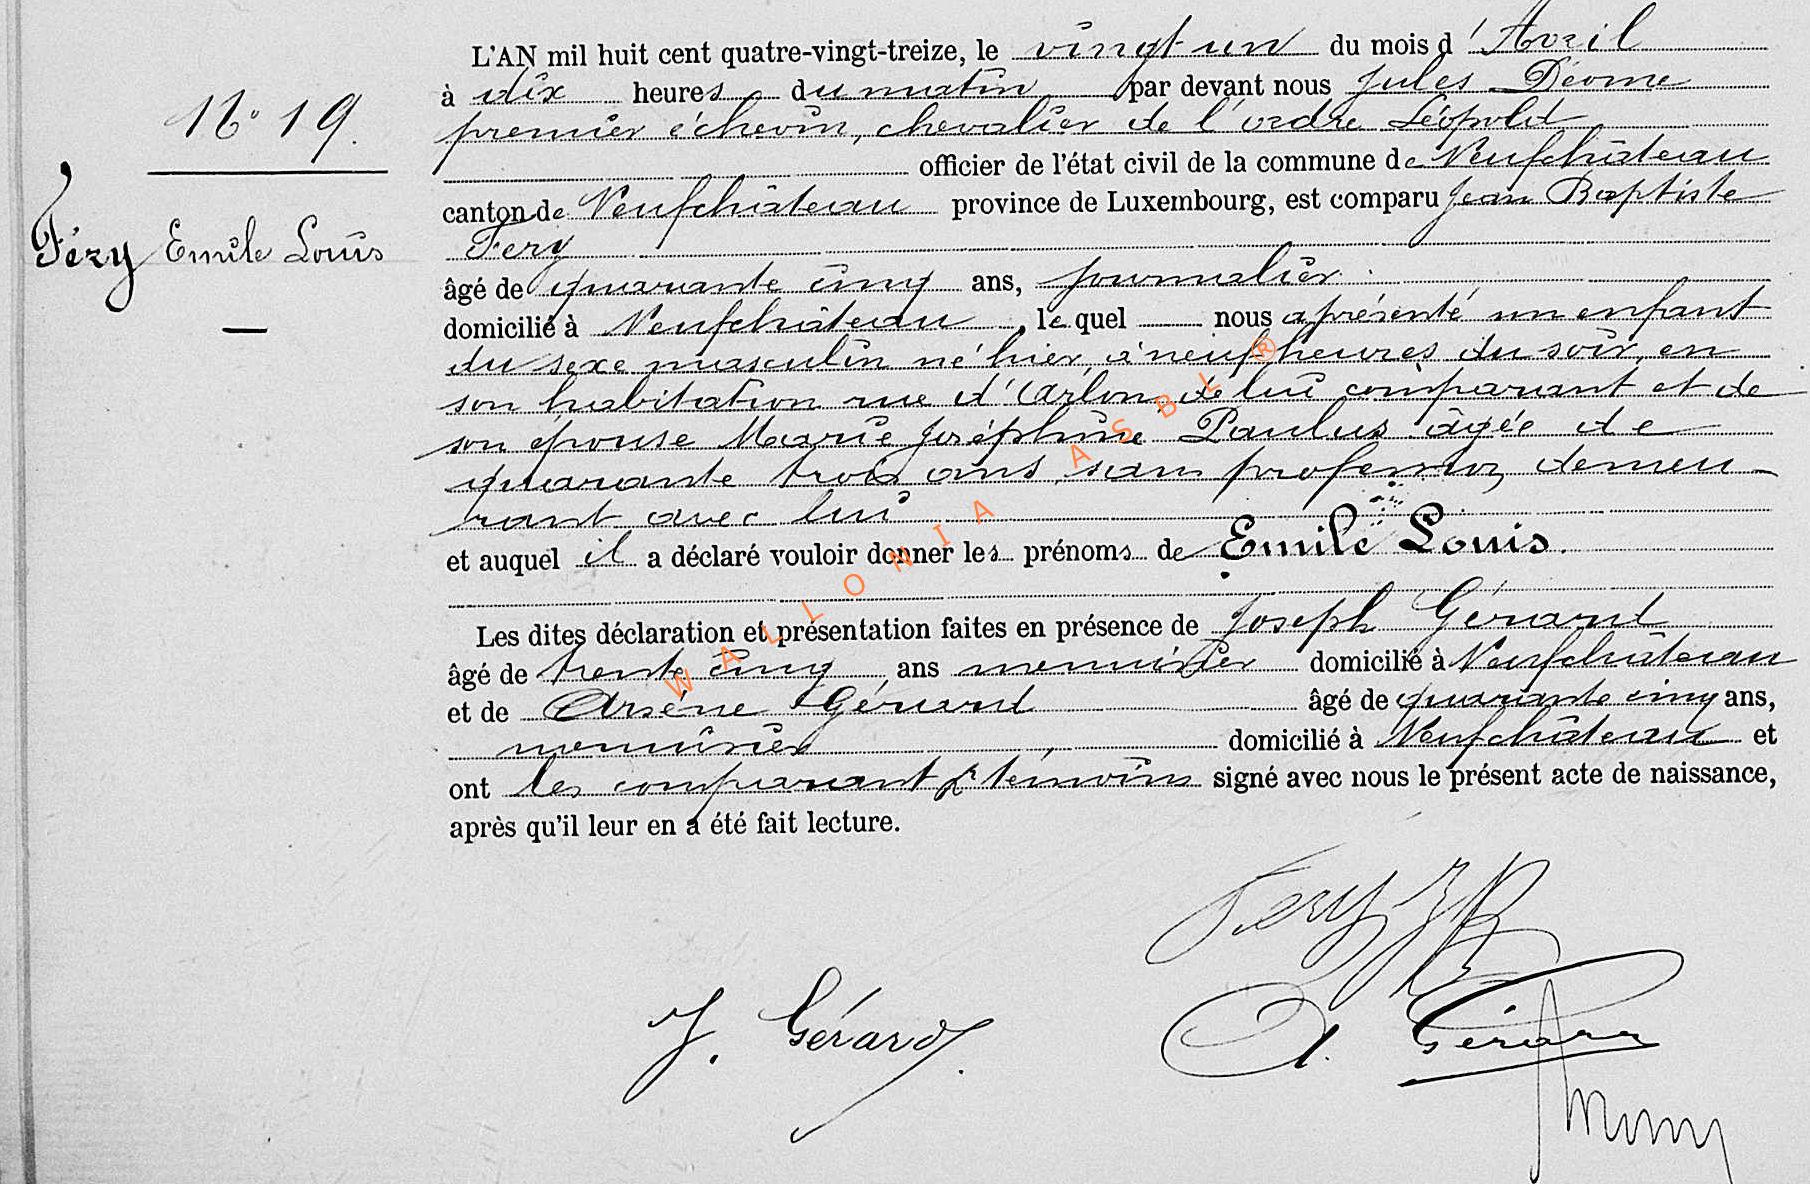 L'AN mil huit cent quatre-vingt-treize, le vingt un du mois d'Avril
à dix heures du matin par devant nous Jules
premier échevin, chevalier de l'ordre Léopold
officier de l'état civil de la commune de Neufchâteau
canton de Neufchâteau province de Luxembourg, est comparu Jean Baptiste
Fery
âgé de quarante cinq ans, journalier
domicilié à Neufchâteau, lequel nous a présenté un enfant
du sexe masculin né hier à neuf heures du soir, en
son habitation rue d'Arlon, de lui comparant et de
son épouse Marie Joséphine Paulus âgée de
quarante trois ans, sans profession, demeu-
rant avec lui
et auquel il a déclaré vouloir donner les prénoms de Emile Louis.
Les dites déclaration et présentation faites en présence de Joseph Gérard
âgé de trente cinq ans menuisier domicilié à Neufchâteau
et de Arsène Gérard âgé de quarante cinq ans,
menuisier, domicilié à Neufchâteau et
ont les comparant & témoins signé avec nous le présent acte de naissance,
après qu'il leur en a été fait lecture.
N° 19.
Féry Emile Louis
Fery JB
J. Gérard.
A. Gérard
WALLONIA ASBL ®